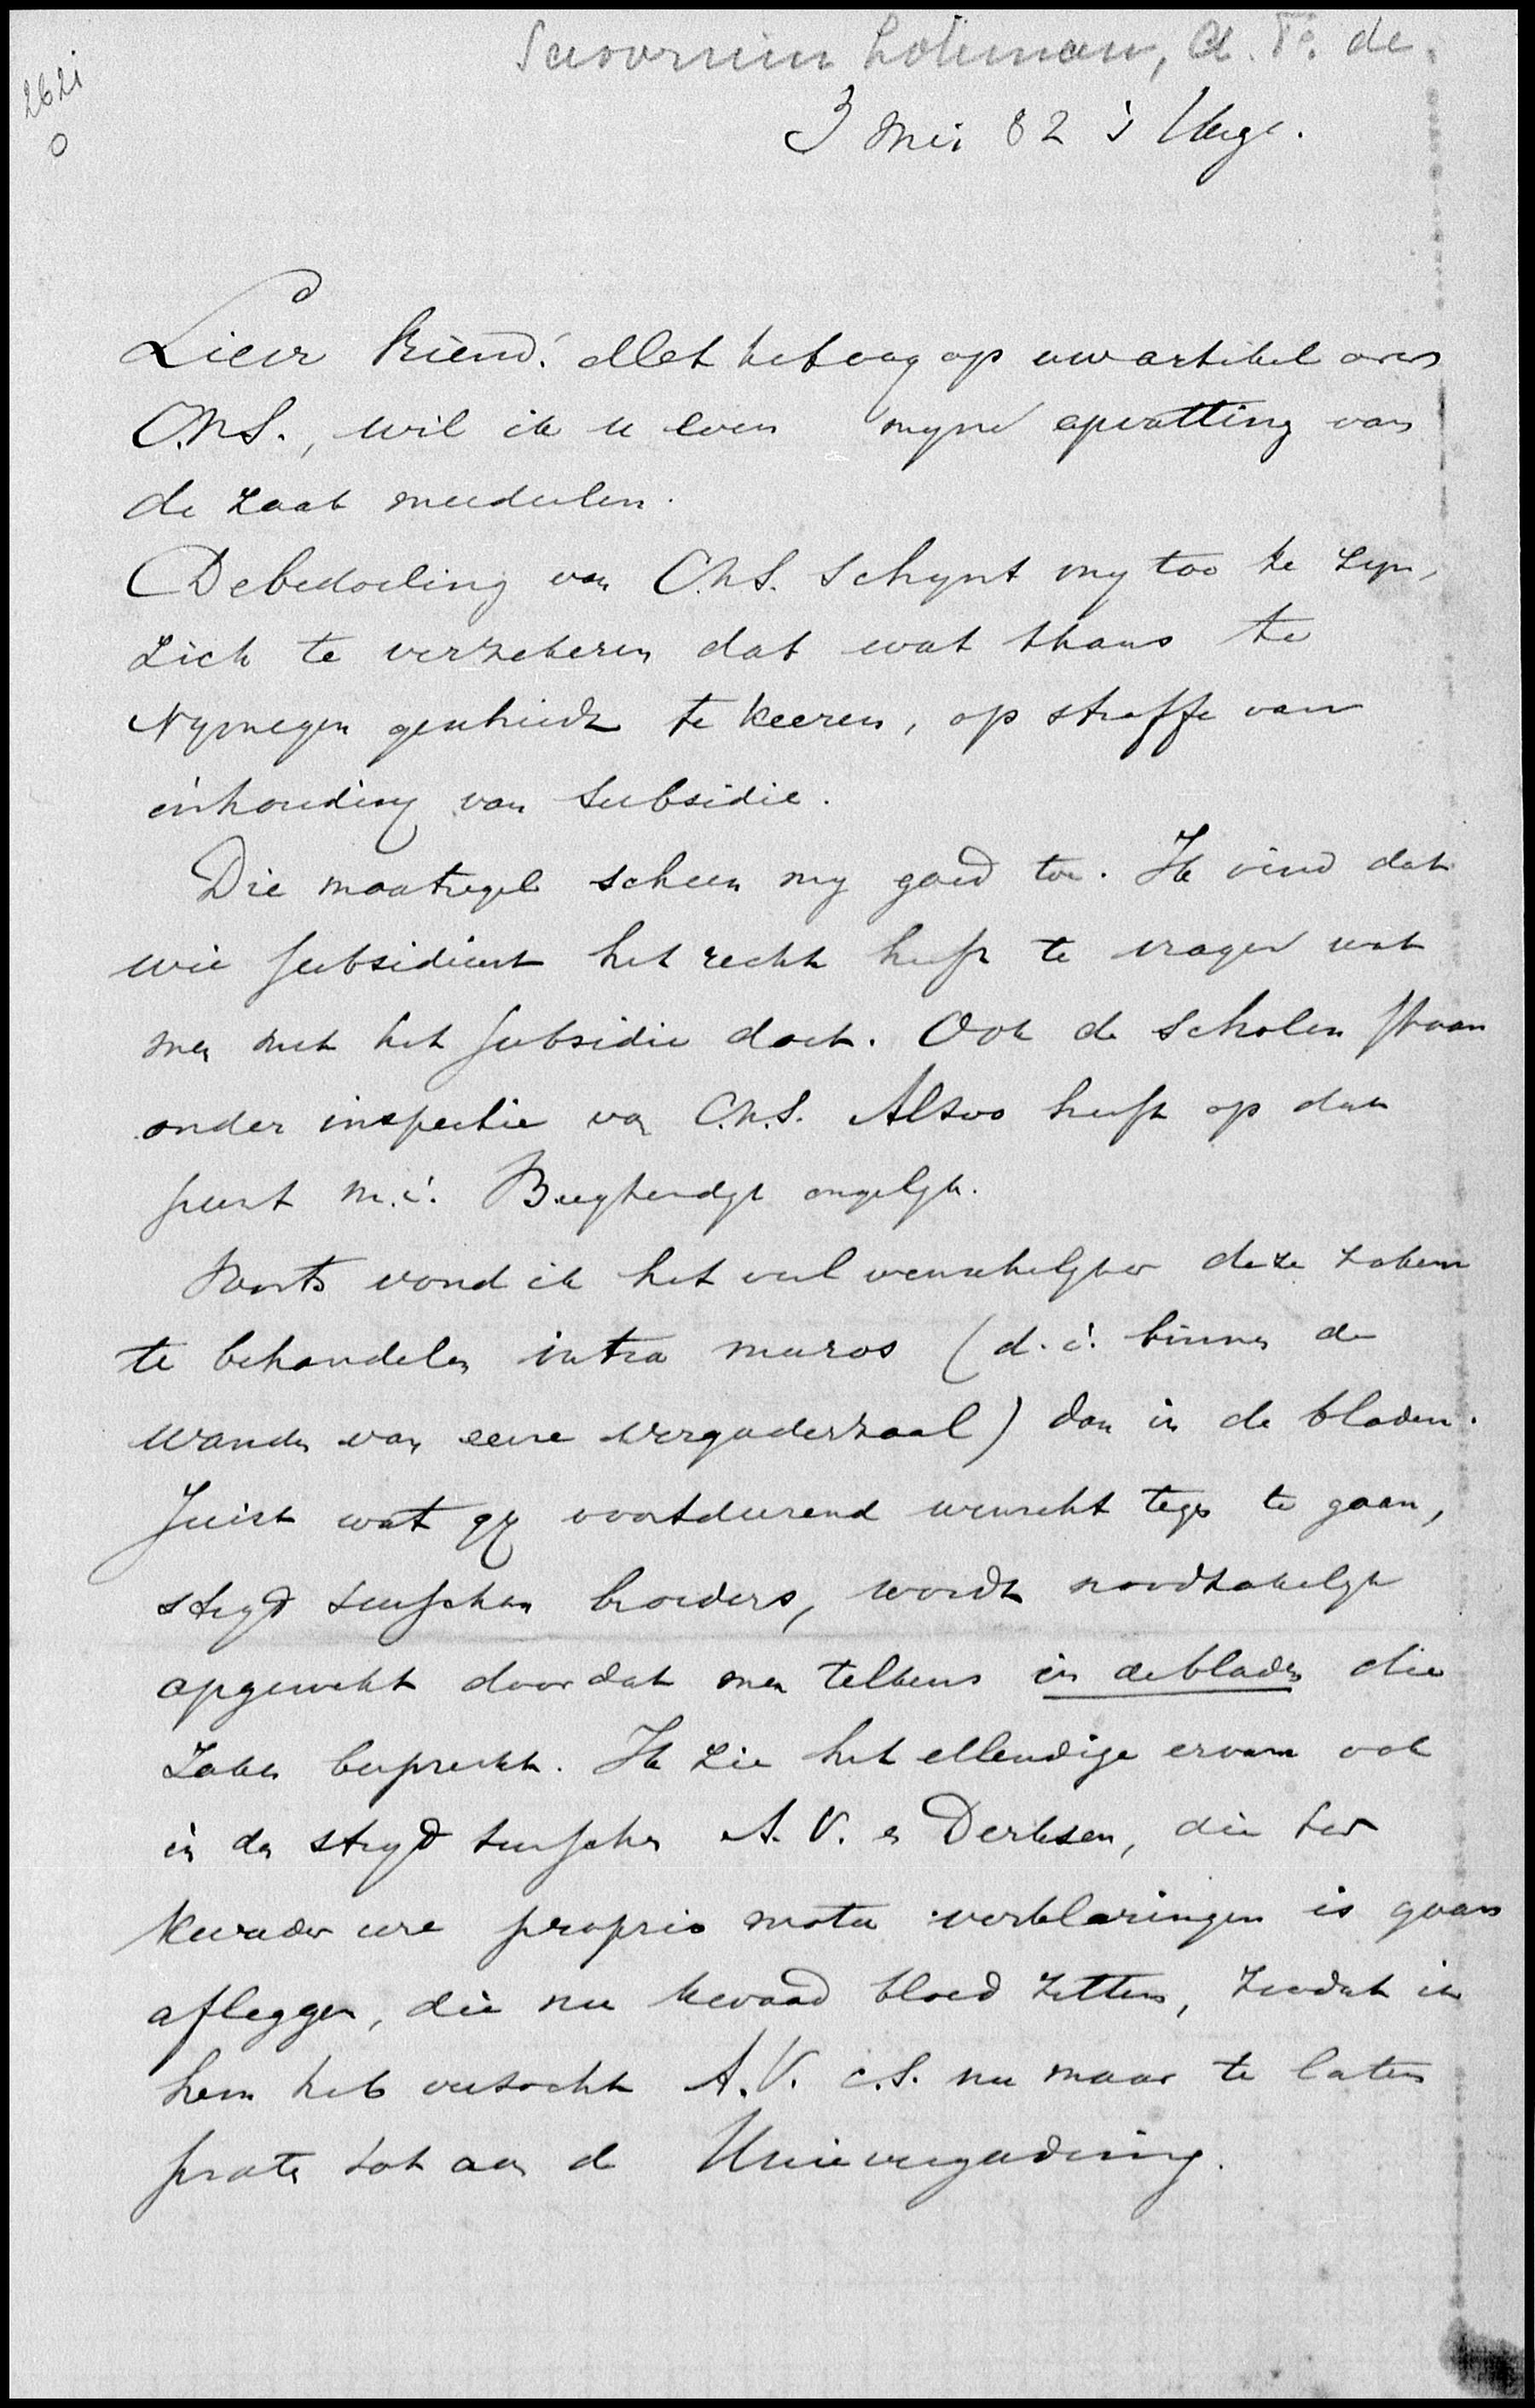 Savornin Lohman, A. F. de
2621
0
3 Mei 82 's Hage.
Lieve Vriend! Met betrekking op uw artikel over
C.N.S., wil ik u even myne opvatting van
de zaak meedeelen.
De bedoeling van C.N.S. schynt my toe te zyn,
zich te verzekeren dat wat thans te
Nymegen geschiedt te keeren, op straffe van
inhouding van subsidie.
Die maatregel scheen my goed toe. Ik vind dat
wie subsidieert het recht heeft te vragen wat
men met het subsidie doet. Ook de scholen staan
onder inspectie van C.N.S. Alzoo heeft op dat
punt m.i. ongelyk.
Voorts vond ik het veel wenschelyker deze zaken
te behandelen intra muros (d.i. binnen de
wanden van eene vergaderzaal) dan in de bladen.
Juist wat gy voortdurend wenscht tegen te gaan,
stryd tusschen broeders, wordt noodzakelyk
opgewekt doordat men telkens in de bladen die
zaken bespreekt. Ik zie het ellendige ervan ook
in den stryd tusschen A.V. en Derksen, die ter
kwader ure proprio motu verklaringen is gaan
afleggen, die nu kwaad bloed zetten, zoodat ik
hem heb verzocht A.V. c.s. nu maar te laten
praten tot aan de Unievergadering.